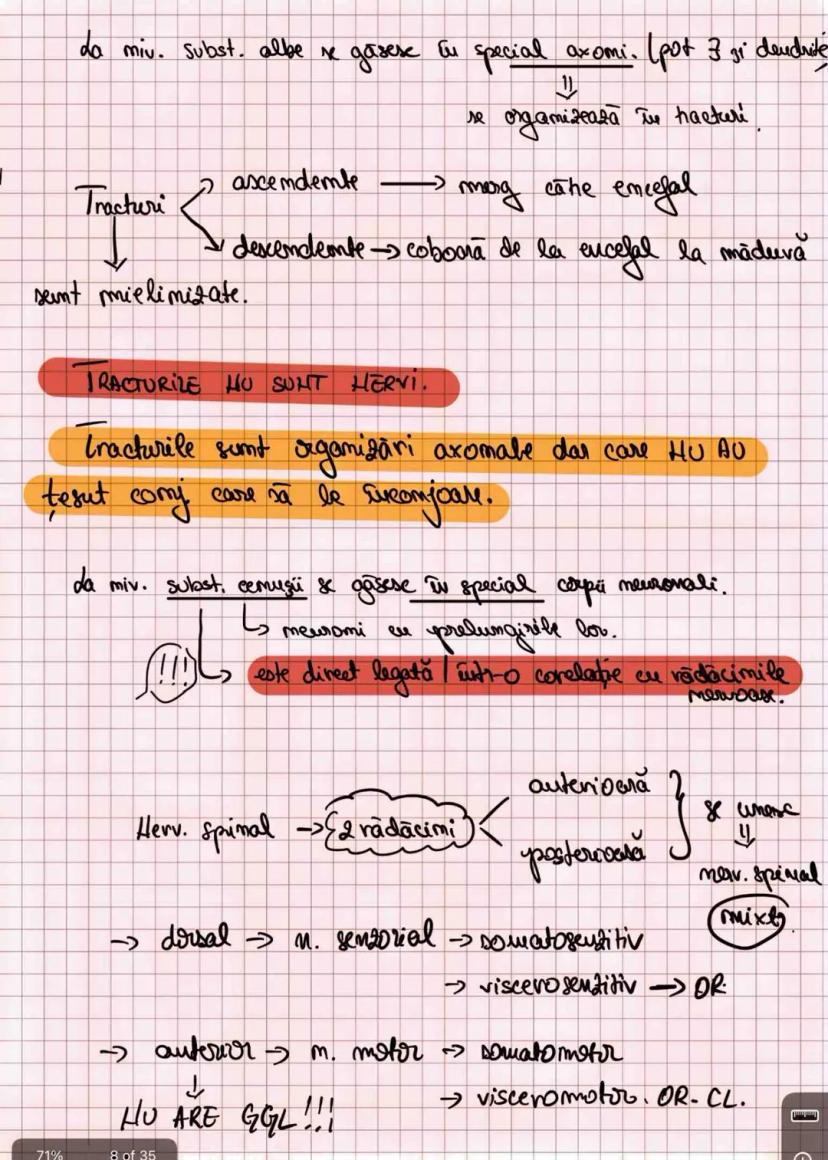 La niv. subst. albe se găsesc în special axoni. (pot ∃ și dendrite
⇓
se organizează în tracturi.
Tracturi
ascendente → merg către encefal
descendente → coboară de la encefal la măduvă
↓
sunt mielinizate.
TRACTURILE NU SUNT NERVI.
Tracturile sunt organizări axonale dar care NU AU
țesut conj care să le înconjoare.
La niv. subst. cenușii se găsesc în special corpii neuronali.
↳ neuroni cu prelungirile lor.
!!! ↳ este direct legată / într-o corelație cu rădăcinile
nervoase.
Nerv. spinal → 2 rădăcini
anterioară
posterioară
se unesc
⇓
nerv. spinal
mixt
→ dorsal → n. senzorial → somatosenzitiv
→ viscerosenzitiv → OR.
→ anterior → n. motor → somatomotor
↓
NU ARE GGL!!!
→ visceromotor. OR- CL.
71% 8 of 35